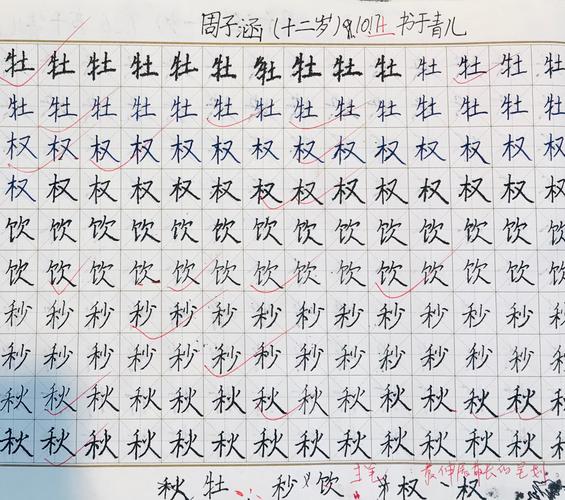 周子涵(十二岁) 书于青儿
牡牡牡牡牡牡牡牡牡牡牡牡牡牡
牡牡牡牡牡牡牡牡牡牡牡牡牡牡
权权权权权权权权权权权权权权
权权权权权权权权权权权权权权
饮饮饮饮饮饮饮饮饮饮饮饮饮饮
饮饮饮饮饮饮饮饮饮饮饮饮饮饮
秒秒秒秒秒秒秒秒秒秒秒秒秒秒
秒秒秒秒秒秒秒秒秒秒秒秒秒秒
秋秋秋秋秋秋秋秋秋秋秋秋秋秋
秋秋秋秋秋秋秋秋秋秋秋秋秋秋
主笔:
秋 牡 秒 饮 权 权